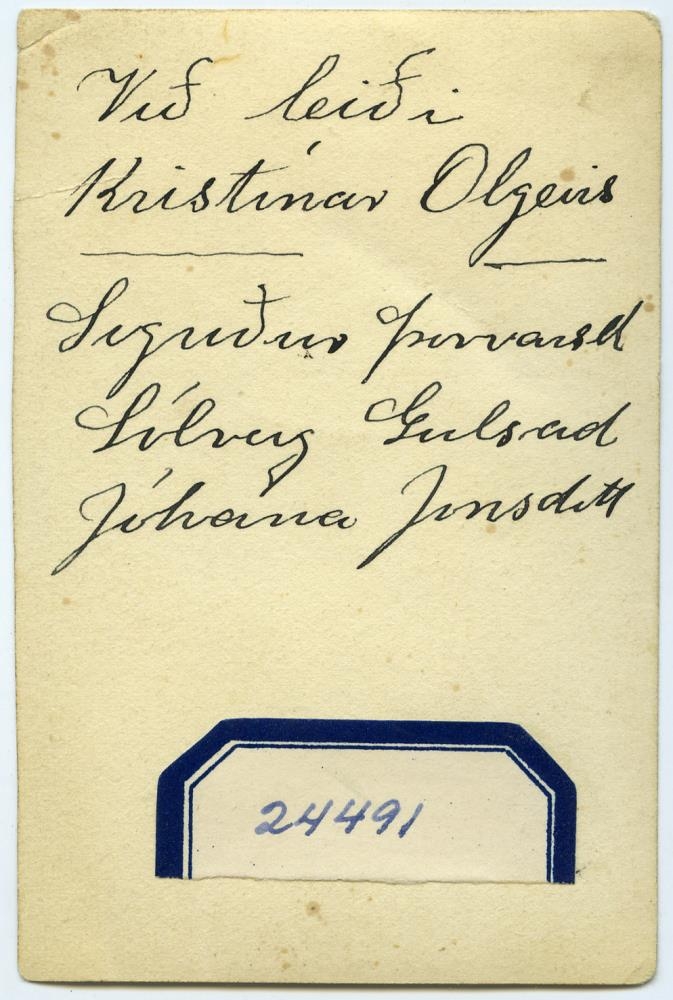 Við leiði
Kristínar Olgeirs
Sigríður Þorvarsd
Sólveg Gulsad
Jóhána Jonsdótt
24491